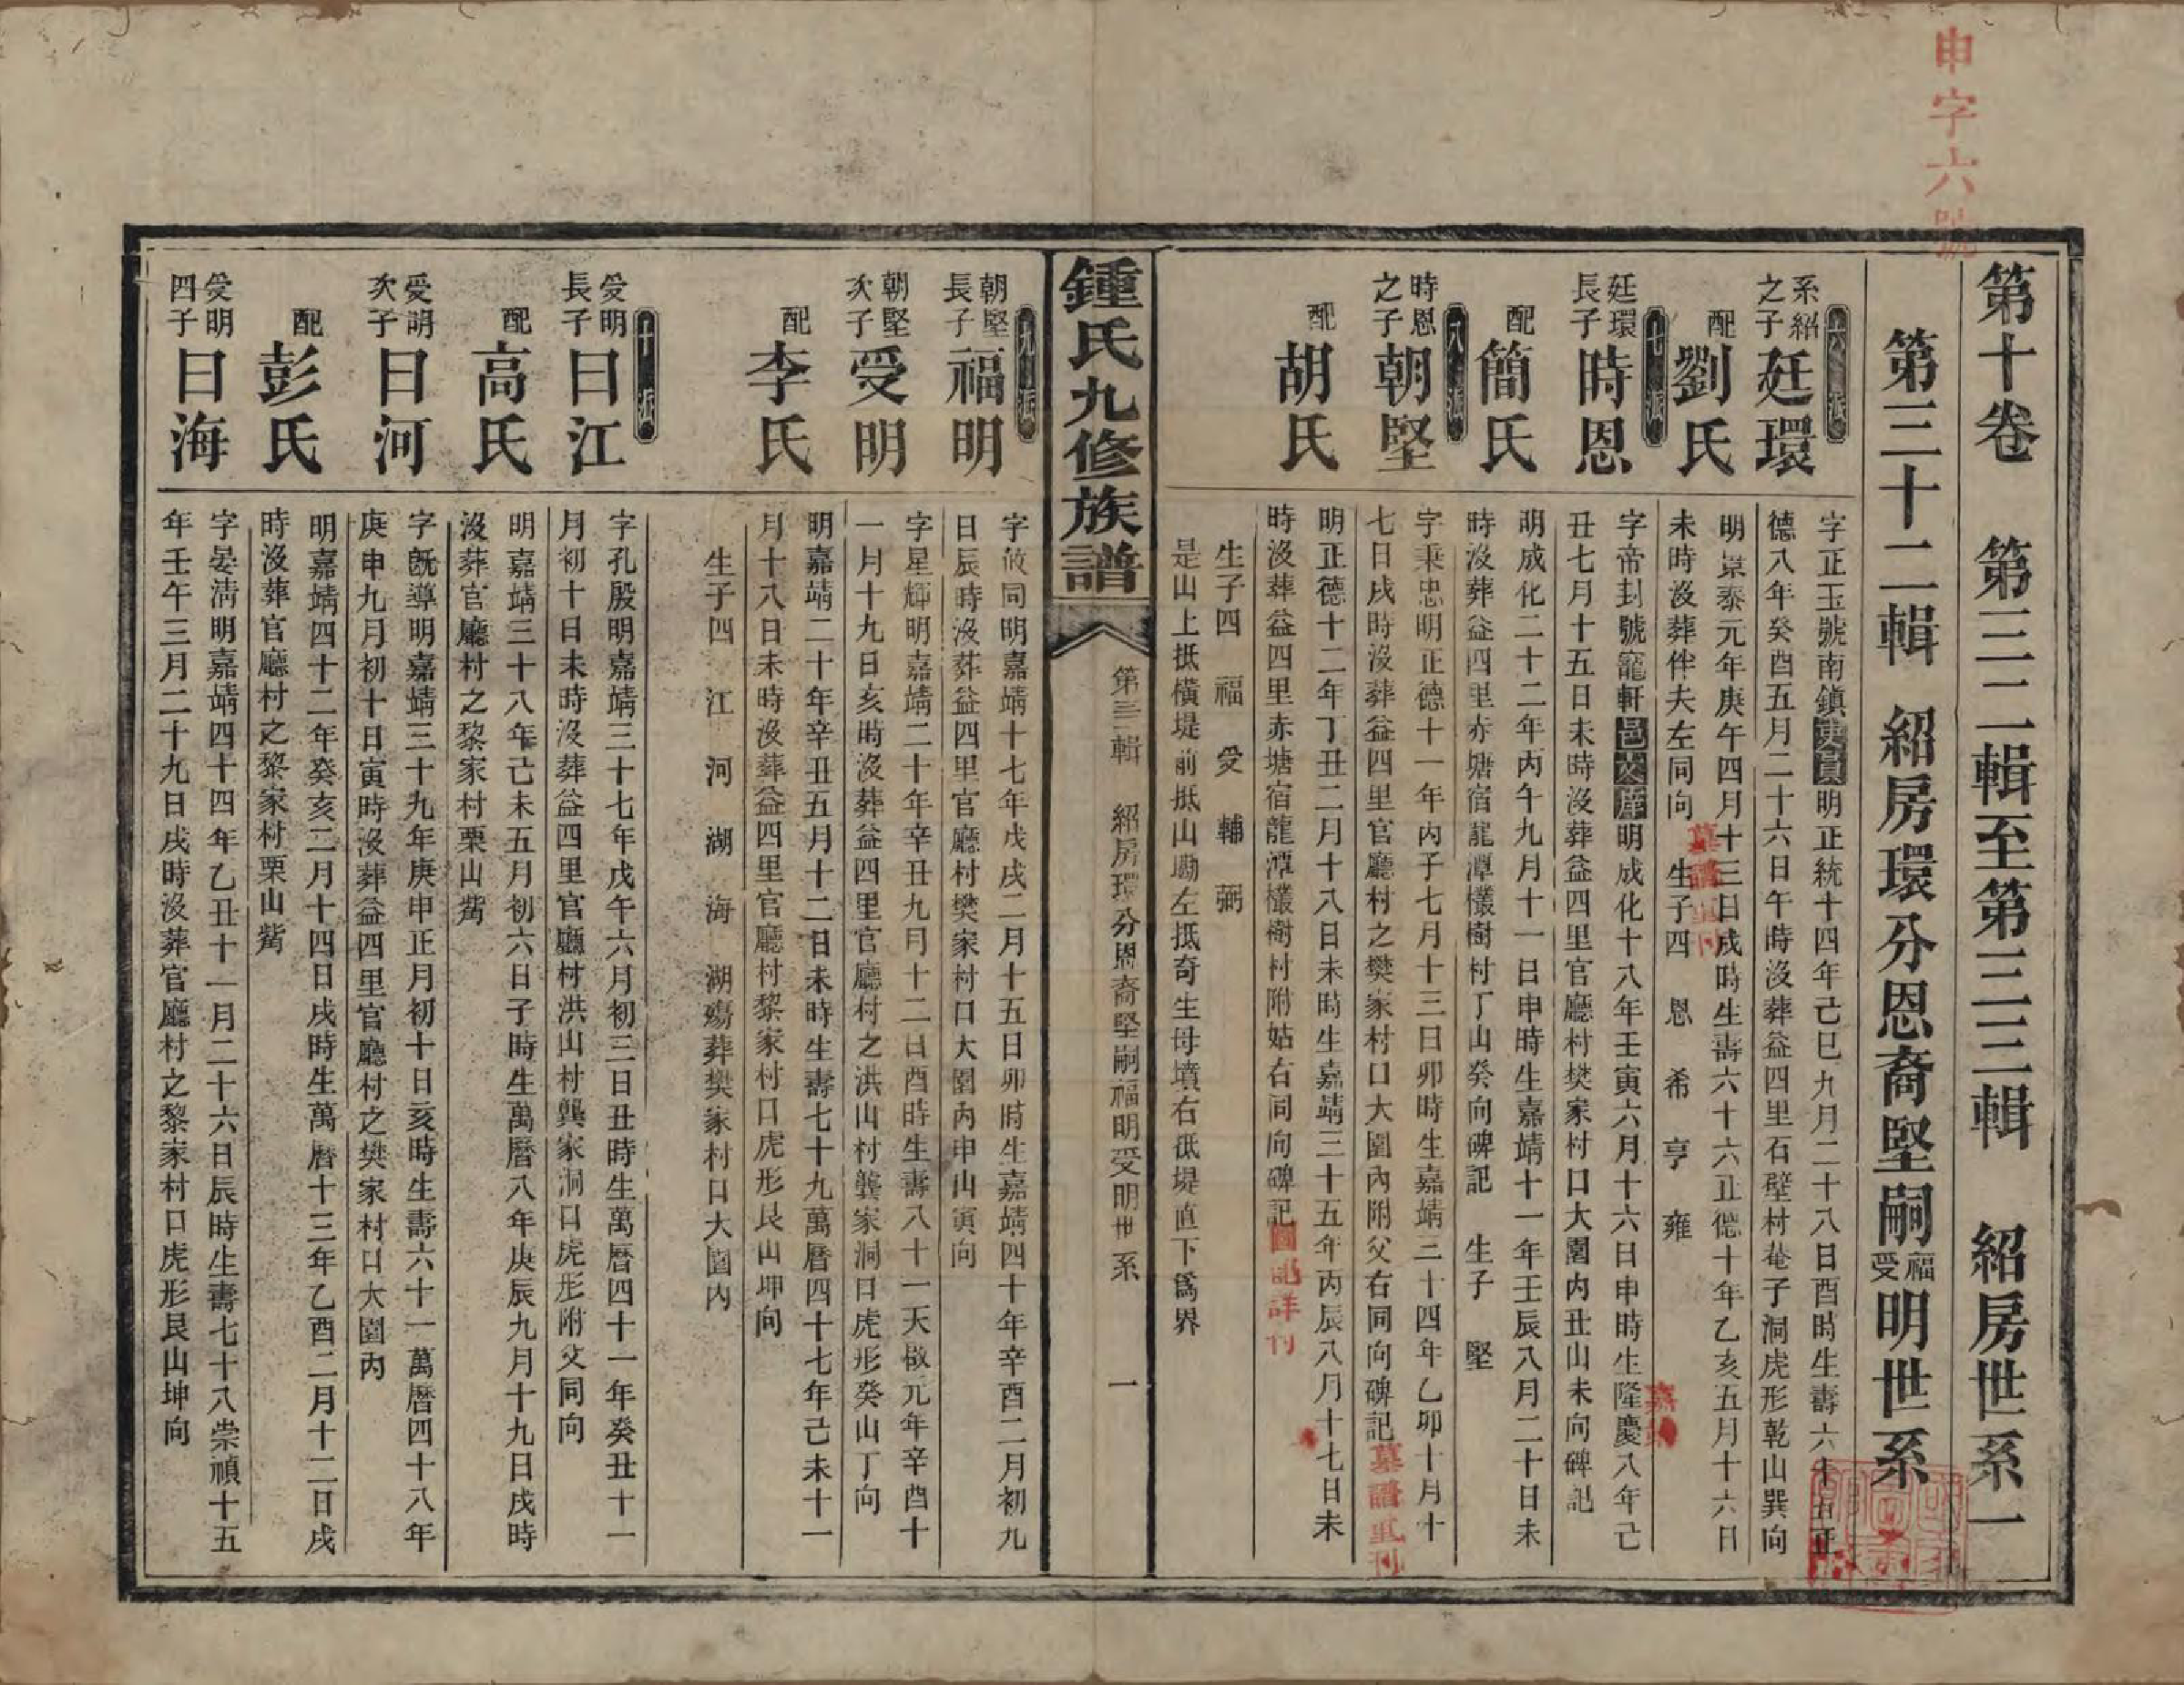 申字六號
第十卷　第三二輯至第三三輯　紹房世系一
第三十二輯　紹房環分恩裔堅嗣福受明世系
六派
系紹之子廷環
字正玉號南鎮明正統十四年己巳九月二十八日酉時生壽六十五正
德八年癸酉五月二十六日午時沒葬益四里石壁村菴子洞虎形乾山巽向
配劉氏
明景泰元年庚午四月十三日戌時生壽六十六正德十年乙亥五月十六日
未時沒葬伴夫左同向　生子四　恩　希　亨　雍
七派
廷環長子時恩
字帝封號寵軒邑庠明成化十八年壬寅六月十六日申時生隆慶八年己
丑七月十五日未時沒葬益四里官廳村樊家村口大園內丑山未向碑記
配簡氏
明成化二十二年丙午九月十一日申時生嘉靖十一年壬辰八月二十日未
時沒葬益四里赤塘宿龍潭欉樹村丁山癸向碑記　生子　堅
八派
時恩之子朝堅
字秉忠明正德十一年丙子七月十三日卯時生嘉靖三十四年乙卯十月十
七日戌時沒葬益四里官廳村之樊家村口大園內附父右同向碑記墓譜重刊
配胡氏
明正德十二年丁丑二月十八日未時生嘉靖三十五年丙辰八月十七日未
時沒葬益四里赤塘宿龍潭欉樹村附姑右同向碑記圖記詳刊
生子四　福　受　輔　弼
是山上抵橫堤前抵山勘左抵奇生母墳右抵堤直下爲界
鍾氏九修族譜
第三二輯　紹房環分恩裔堅嗣福明受明世系　一
九派
朝堅長子福明
字攸同明嘉靖十七年戊戌二月十五日卯時生嘉靖四十年辛酉二月初九
日辰時沒葬益四里官廳村樊家村口大園內申山寅向
朝堅次子受明
字星輝明嘉靖二十年辛丑九月十二日酉時生壽八十一天啟元年辛酉十
一月十九日亥時沒葬益四里官廳村之洪山村龔家洞口虎形癸山丁向
配李氏
明嘉靖二十年辛丑五月十二日未時生壽七十九萬曆四十七年己未十一
月十八日未時沒葬益四里官廳村黎家村口虎形艮山坤向
生子四　江　河　湖　海　湖殤葬樊家村口大園內
十派
受明長子日江
字孔殷明嘉靖三十七年戊午六月初三日丑時生萬曆四十一年癸丑十一
月初十日未時沒葬益四里官廳村洪山村龔家洞口虎形附父同向
配高氏
明嘉靖三十八年己未五月初六日子時生萬曆八年庚辰九月十九日戌時
沒葬官廳村之黎家村栗山觜
受明次子日河
字旣導明嘉靖三十九年庚申正月初十日亥時生壽六十一萬曆四十八年
庚申九月初十日寅時沒葬益四里官廳村之樊家村口大園內
配彭氏
明嘉靖四十二年癸亥二月十四日戌時生萬曆十三年乙酉二月十二日戌
時沒葬官廳村之黎家村栗山觜
受明四子日海
字晏淸明嘉靖四十四年乙丑十一月二十六日辰時生壽七十八崇禎十五
年壬午三月二十九日戌時沒葬官廳村之黎家村口虎形艮山坤向